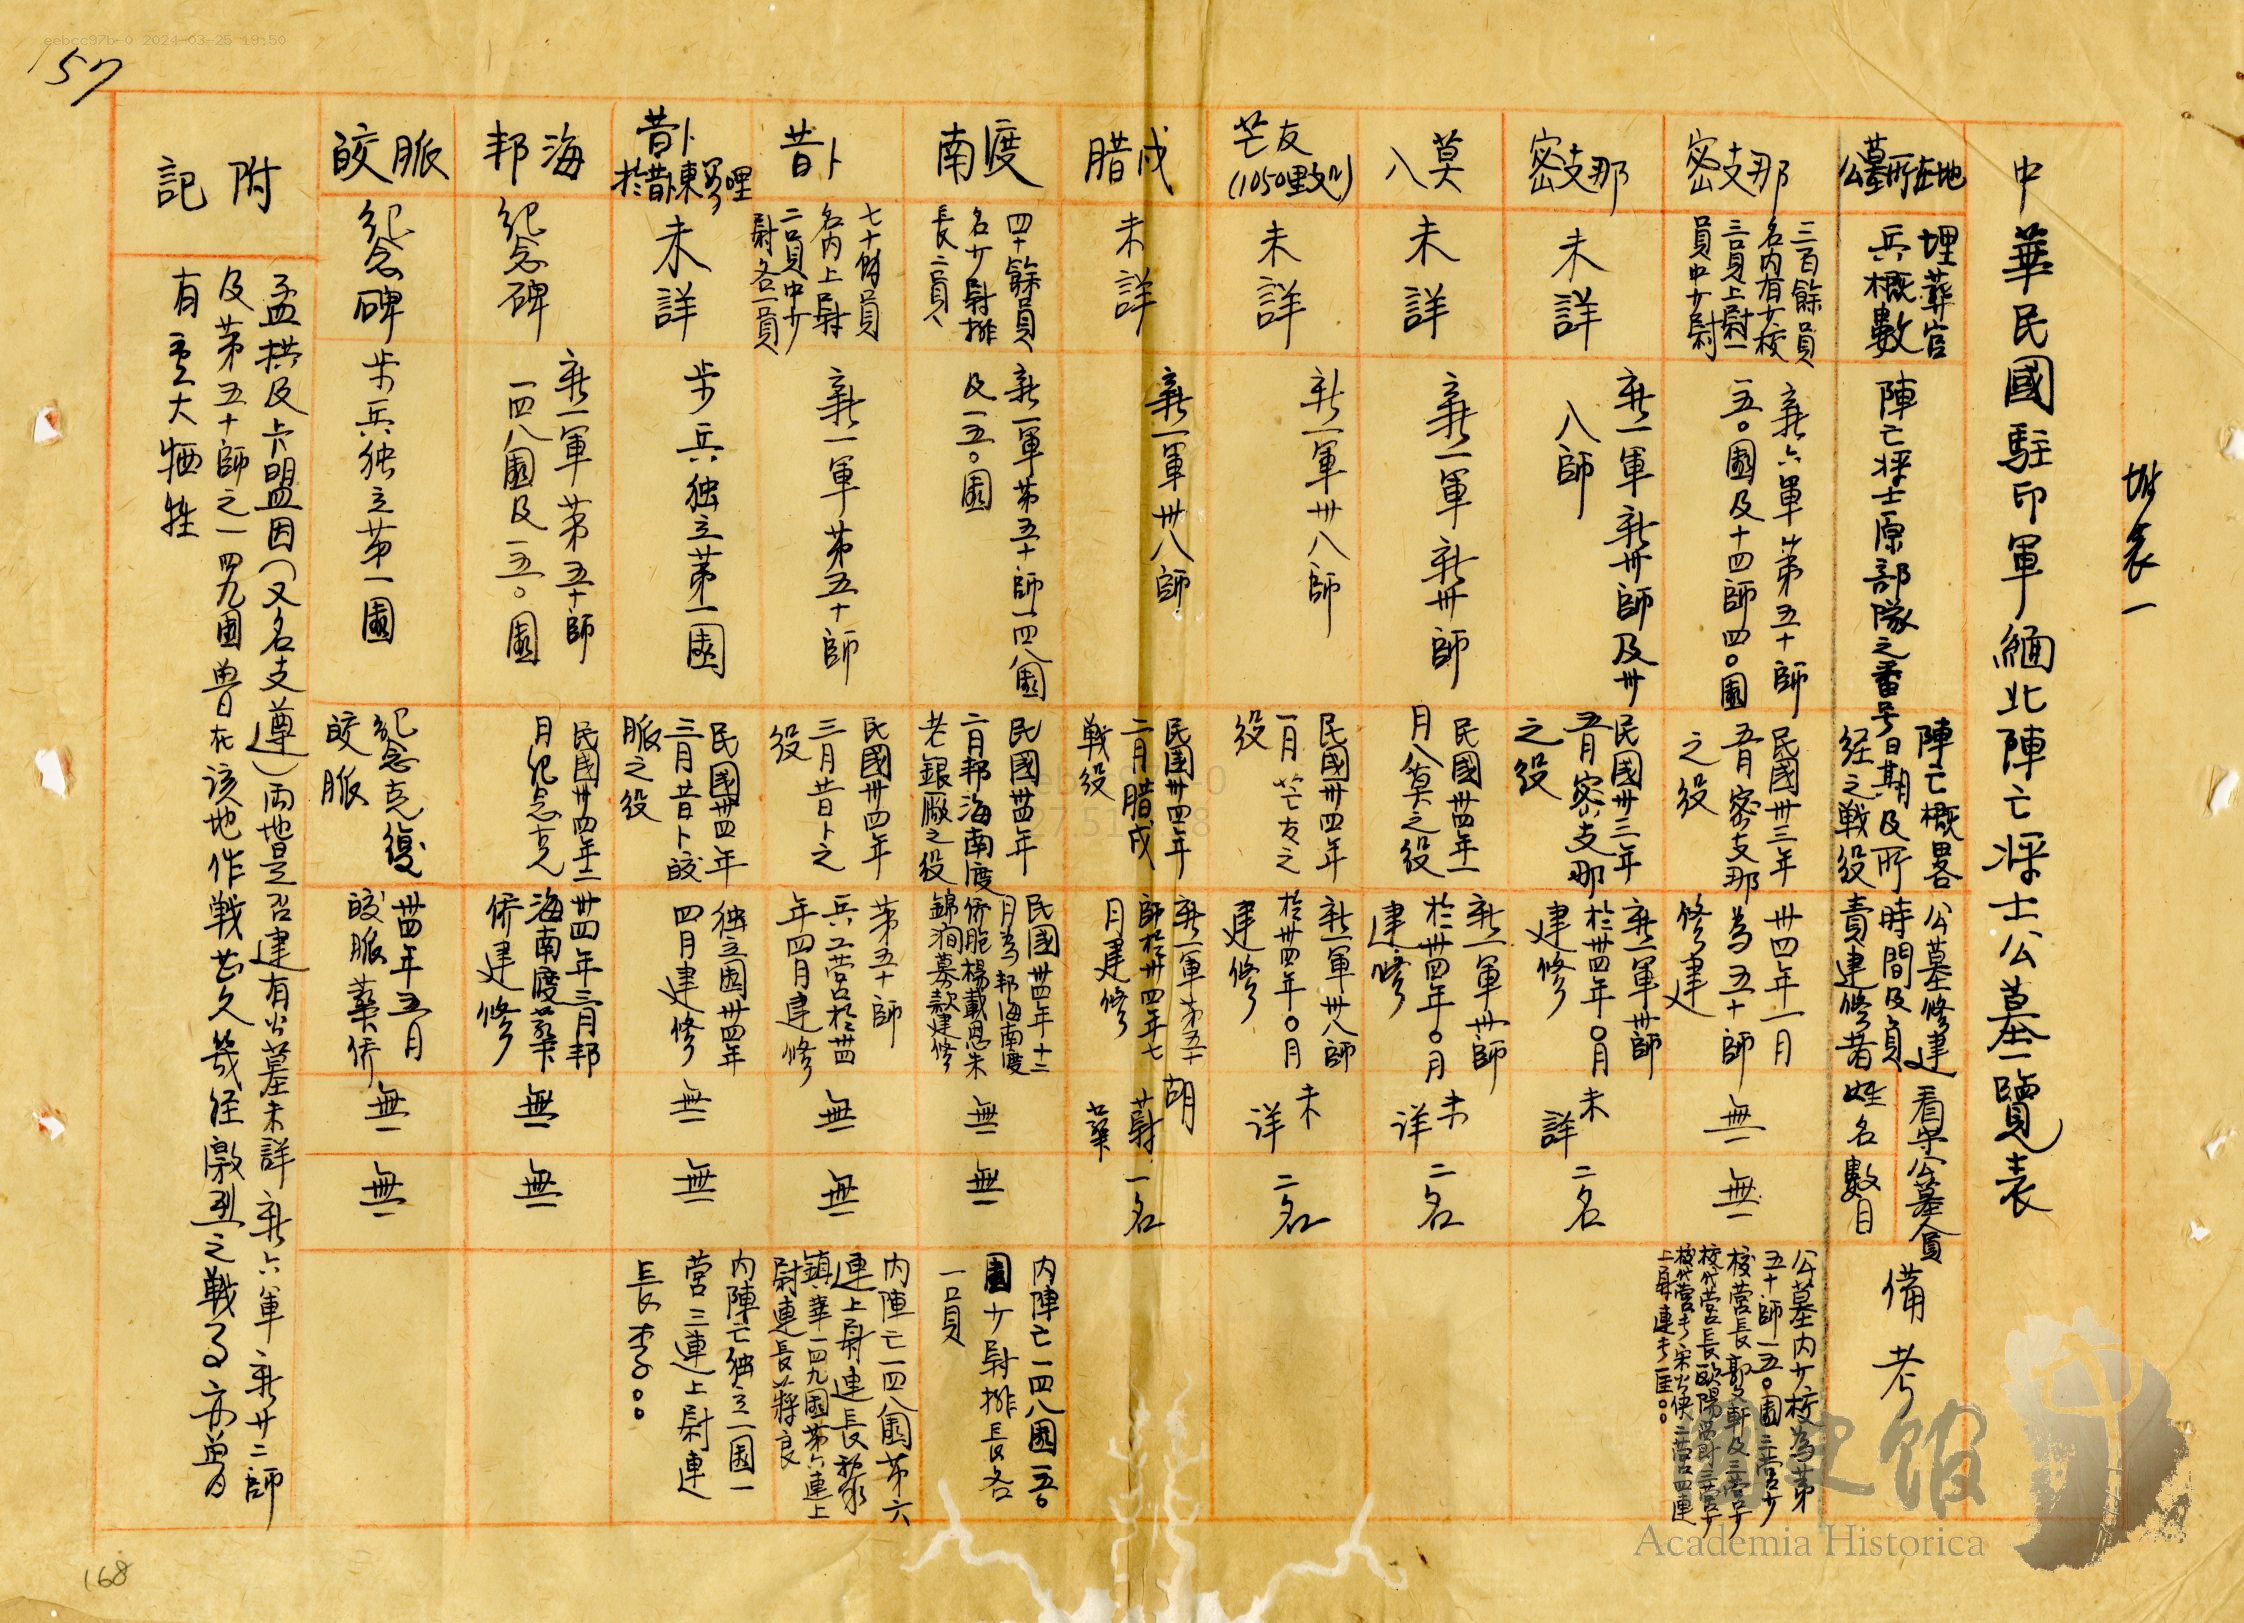 附表一
中華民國駐印軍緬北陣亡將士公墓一覽表
公墓所在地
埋葬官
兵概數
陣亡將士原部隊之番号
陣亡概畧
日期及所
經之戰役
公墓修建
時間及負
責建修者
看守公墓員
姓名數目
備考
密支那
三百餘員
名內有少校
三員上尉一
員中少尉
新六軍第五十師
一五〇團及十四師四〇團
民國卅三年
五月密支那
之役
卅四年一月
為五十師
修建
無
無
公墓内少校為第
五十師一五〇團三营少
校营長郭文軒及三营少
校代营長歐陽
上尉連長匡〇〇
密支那
未詳
新一軍新卅師及卅
八師
民國卅三年
五月密支那
之役
新一軍卅師
於卅四年〇月
建修
未詳
二名
八莫
未詳
新一軍新卅師
民國卅四年一
月八莫之役
新一軍卅師
於卅四年〇月
建修
未详
二名
芒友
(1050里文门)
未詳
新一軍卅八師
民國卅四年
一月芒友之
役
新一軍卅八師
於卅四年〇月
建修
未详
二名
腊戍
未詳
新一軍卅八師
民國卅四年
二月腊戍
戰役
新一軍第五十
師於卅四年七
月建修
胡蔚華
一名
南渡
四十餘員
名少尉排
長二員
新一軍第五十師一四八團
及一五〇團
民國卅四年
二月邦海南渡
老銀厰之役
民國卅四年十二
月為邦海南渡
侨胞楊載恩朱
錦洵募款建修
無
無
内陣亡一四八團一五〇
團少尉排長各
一員
昔卜
七十餘員
名内上尉
二員中少
尉各一員
新一軍第五十師
民國卅四年
三月昔卜之
役
第五十師
兵工营於卅四
年四月建修
無
無
内陣亡一四八團第六
連上尉連長黎
鎮華一四九團第六連上
尉連長蔣良
昔卜
於昔卜東哩
未詳
步兵独立第一團
民國卅四年
三月昔卜皎
脈之役
独立團卅四年
四月建修
無
無
内陣亡独立一團一
营三連上尉連
長李〇〇
邦海
紀念碑
新一軍第五十師
一四八團及一五〇團
民國卅四年二
月紀念克
卅四年三月邦
海南渡華
侨建修
無
無
皎脈
紀念碑
步兵独立第一團
紀念克復
皎脈
卅四年五月
皎脈華侨
無
無
附記
孟拱及卡盟因(又名支遵)両地是否建有公墓未詳新六軍新廿二師
及第五十師之一四九團曽在该地作戰甚久幾经激烈之戰事亦曽
有重大牺牲
157
168
國史館
Academia Historica
eebcc97b-0 2024-03-25 19:50